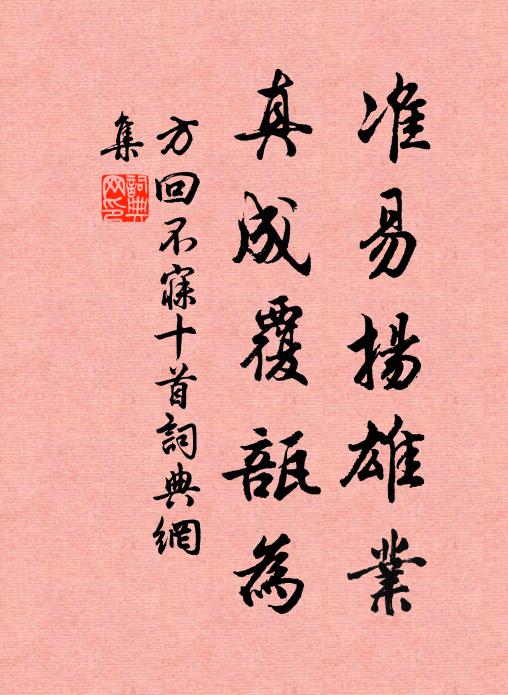 准易揚雄業
真成覆瓿為
方回不寐十首詞典網
集
詞典
网印